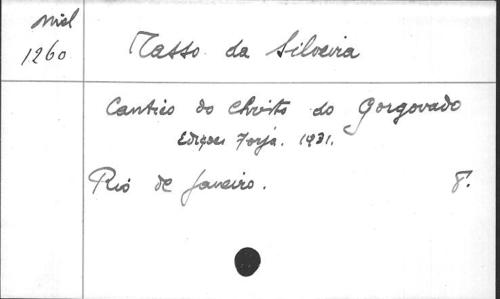 Misl
1260
Tasso da Silveira
Cantico do Christo do Gorgovado
Edições Forja. 1931.
Rio de Janeiro. 8.